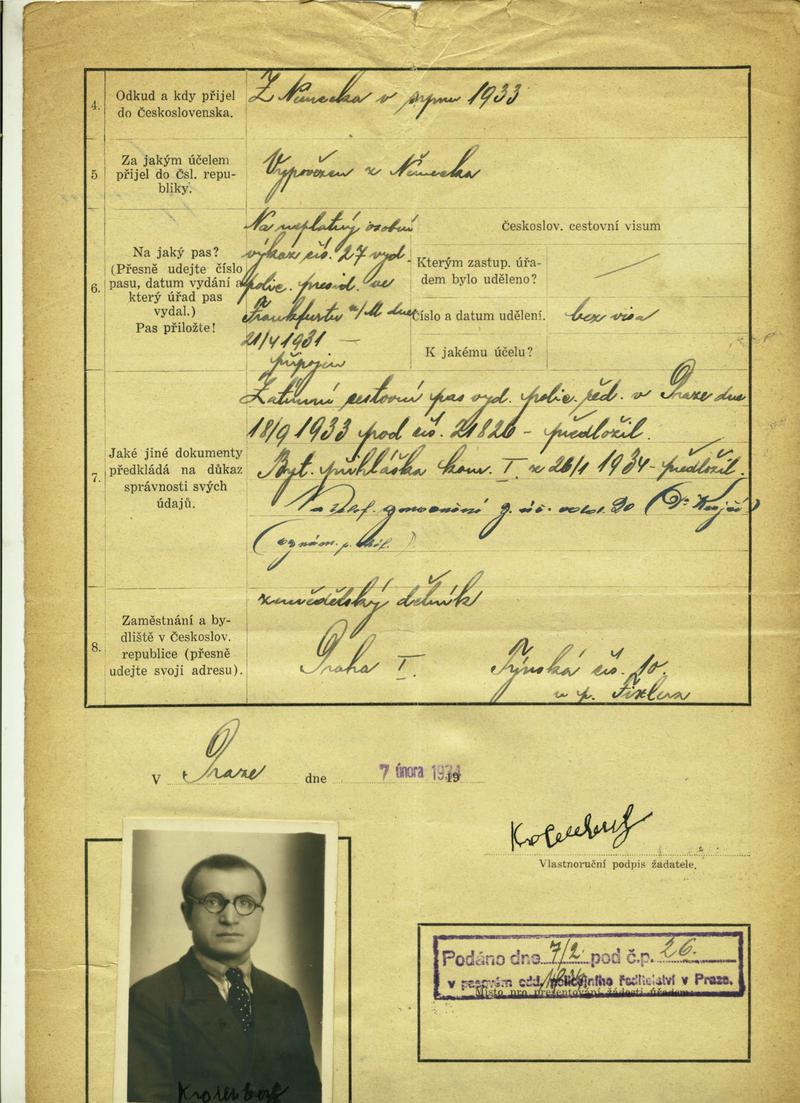 4. Odkud a kdy přijel
do Československa.
Z Německa v srpnu 1933
5 Za jakým účelem
přijel do Čsl. repu-
bliky.
Vypovězen z Německa
6. Na jaký pas?
(Přesně udejte číslo
pasu, datum vydání a
který úřad pas
vydal.)
Pas přiložte!
Na neplatný osobní
výkaz čís. 27 vyd.
polic. presid. ve
Frankfurtu n/M dne
21/4 1931 —
připojin
Českoslov. cestovní visum
Kterým zastup. úřa-
dem bylo uděleno?
Číslo a datum udělení. bez visa
K jakému účelu?
7. Jaké jiné dokumenty
předkládá na důkaz
správnosti svých
údajů.
Zatimní cestovní pas vyd. polic. řed. v Praze dne
18/9 1933 pod čís. 21820 - předložil.
Byt. přihláška kom. I. z 26/1 1934 - předložil.
20 (Dr
8. Zaměstnání a by-
dliště v Českoslov.
republice (přesně
udejte svoji adresu).
zemědělský dělník
Praha I. Týnská čís. 10.
u p. Fixlera
V Praze dne 7 února 1934 19
Vlastnoruční podpis žadatele.
Podáno dne 7/2 pod č.p. 26.
v pasovém odd. policejního ředitelství v Praze.
Místo pro presentování žádosti úřadem